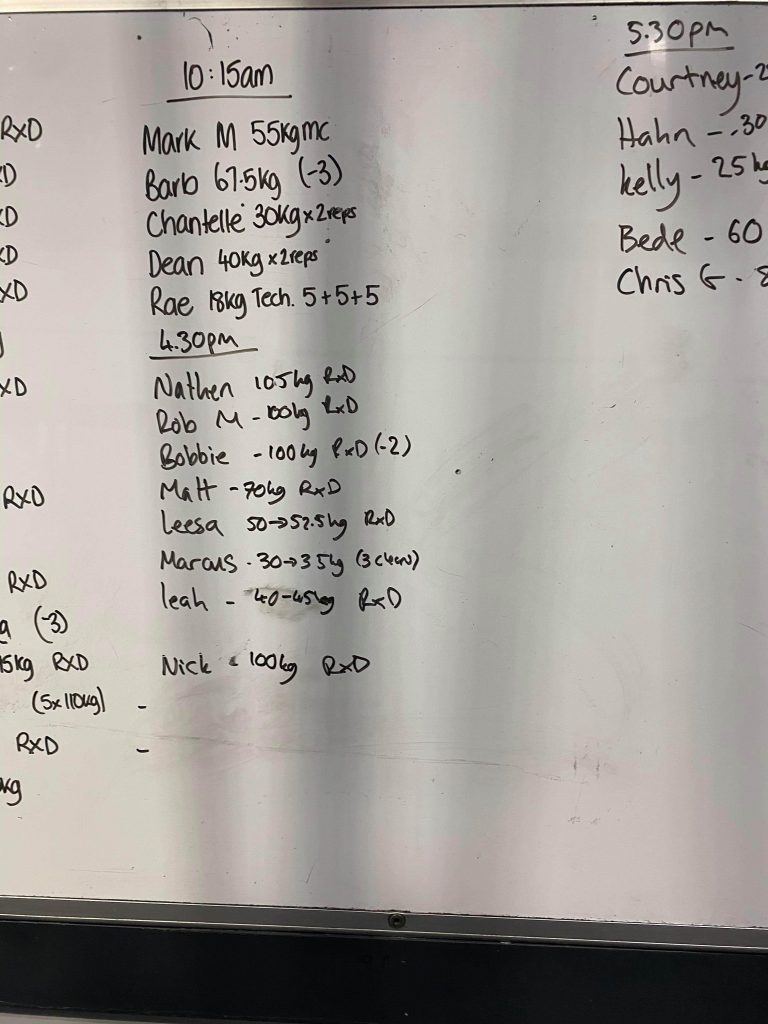 RxD
RxD
(-3)
15kg RxD
(5x110kg) -
RxD -
kg
10:15am
Mark M 55kg mc
Barb 67.5kg (-3)
Chantelle 30kg x 2reps
Dean 40kg x 2reps
Rae 18kg Tech. 5+5+5
4.30pm
Nathen 105kg RxD
Rob M - 100kg RxD
Bobbie - 100kg RxD (-2)
Matt - 70kg RxD
Leesa 50→52.5kg RxD
Marcus - 30→35kg (3 clean)
leah - 40-45kg RxD
Nick - 100kg RxD
5.30pm
Courtney - 2
Hahn - 30
kelly - 25kg
Bede - 60
Chris G -